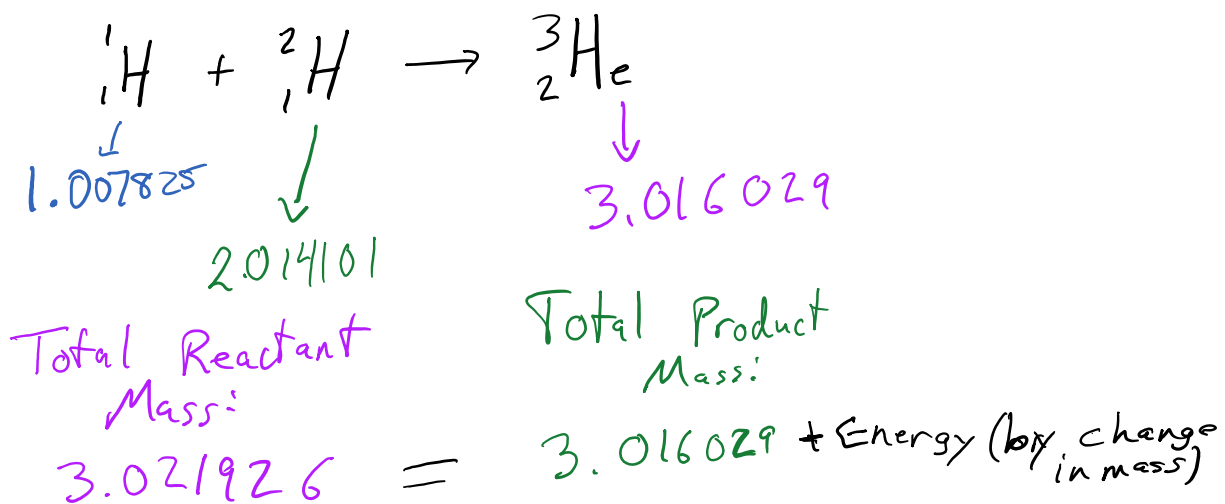 ¹₁H + ²₁H → ³₂He
1.007825
2.014101
3.016029
Total Reactant
Mass:
3.021926
=
Total Product
Mass:
3.016029 + Energy (by change
in mass)